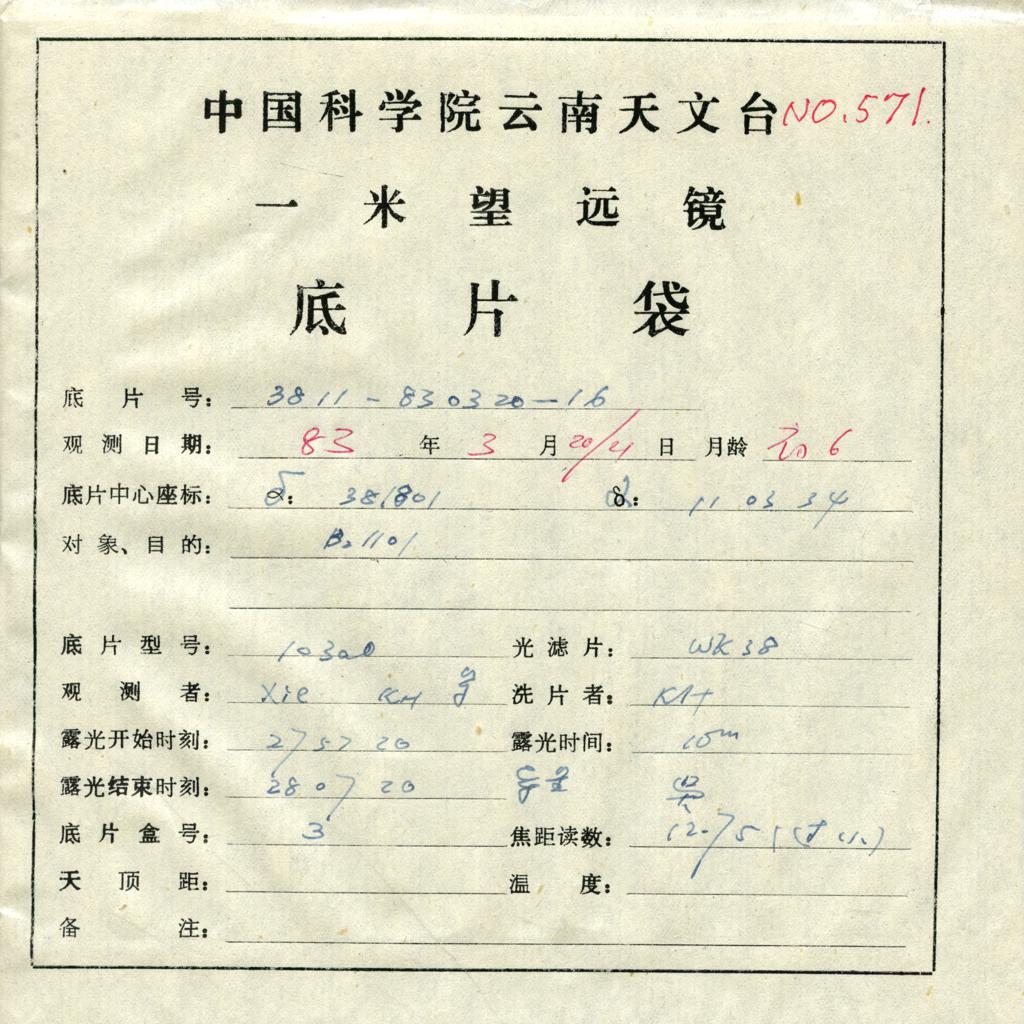 中国科学院云南天文台 NO.571.
一米望远镜
底片袋
底片号: 3811-830320-16
观测日期: 83年3月20/21日 月龄 初6
底片中心座标: δ: 381801 α: 11 03 34
对象、目的: B21101
底片型号: 103aO 光滤片: WK38
观测者: Xie KH 洗片者: KH
露光开始时刻: 27 57 20 露光时间: 10m
露光结束时刻: 28 07 20
底片盒号: 3 焦距读数: 12.75
天顶距: 温度:
备注: